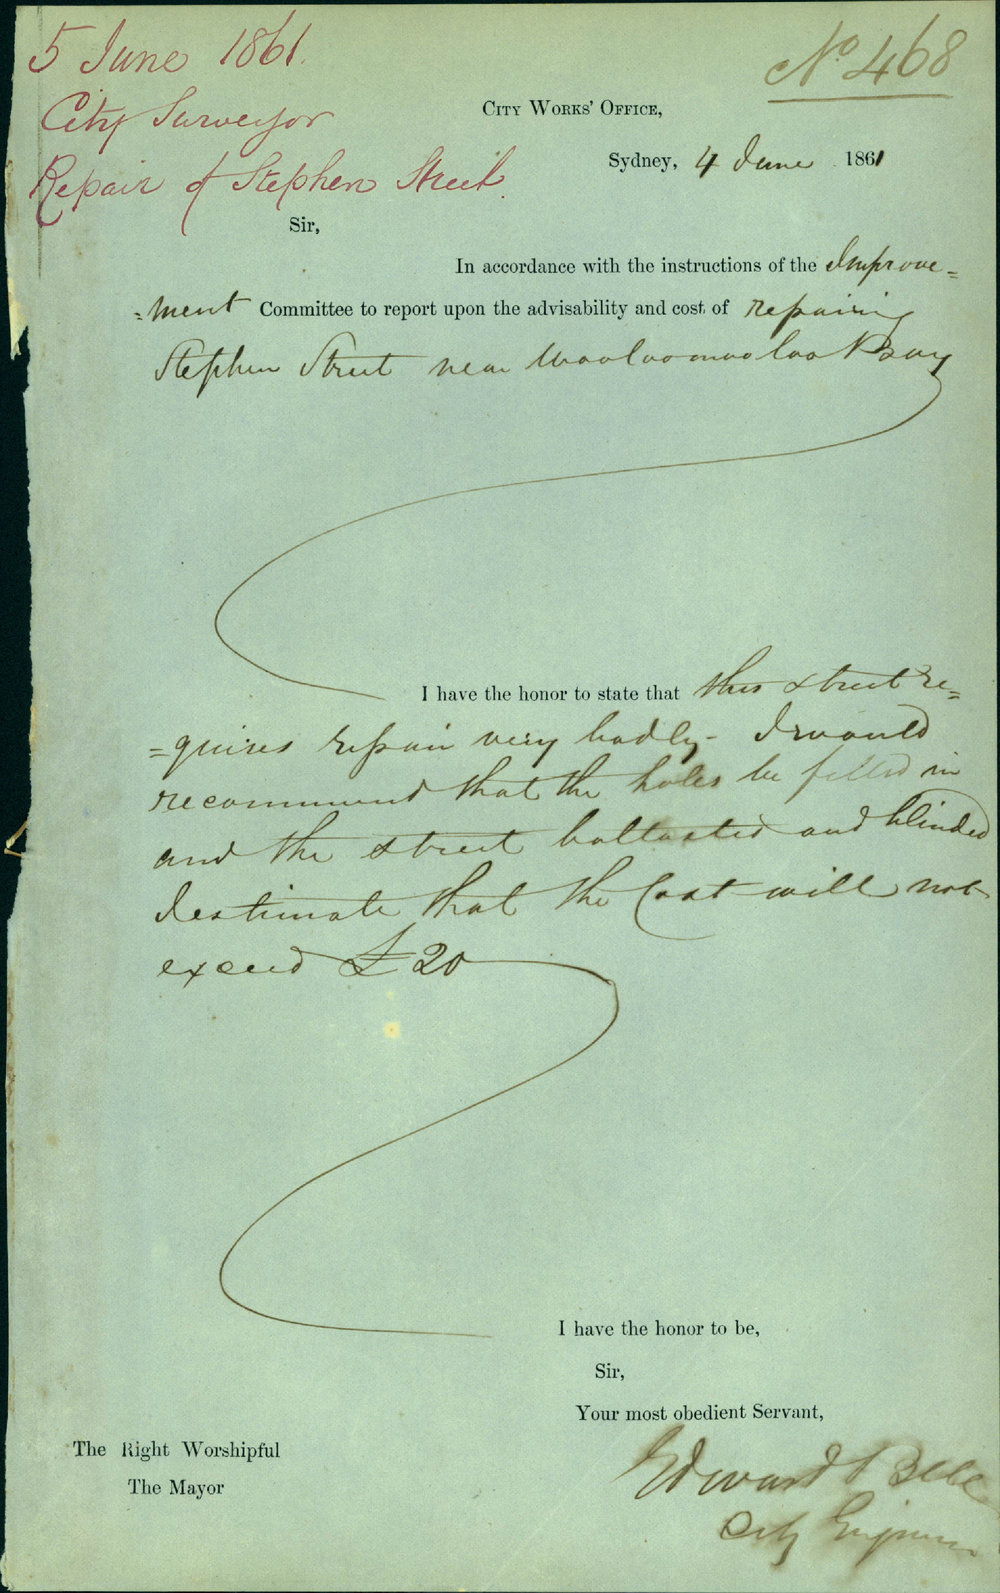 5 June 1861.
City Surveyor
Repair of Stephen Street.
No. 468
City Works' Office,
Sydney, 4 June 1861
Sir,
In accordance with the instructions of the Improve=
=ment Committee to report upon the advisability and cost of repairing
Stephen Street near Woolloomooloo Bay
I have the honor to state that this street re=
=quires repair very badly - I would
recommend that the holes be filled in
and the street ballasted and blinded
I estimate that the Cost will not
exceed £20
I have the honor to be,
Sir,
Your most obedient Servant,
Edward Bell
City Engineer
The Right Worshipful
The Mayor